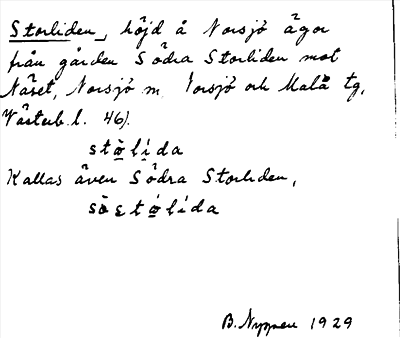 Storliden, höjd å Norsjö ägor
från gården Södra Storliden mot
Näset, Norsjö m. Norsjö och Malå tg,
Västerb. l. 46).
stò̱lị́da
Kallas även Södra Storliden,
sò̀ɛtó̱lída
B. Nyman 1929